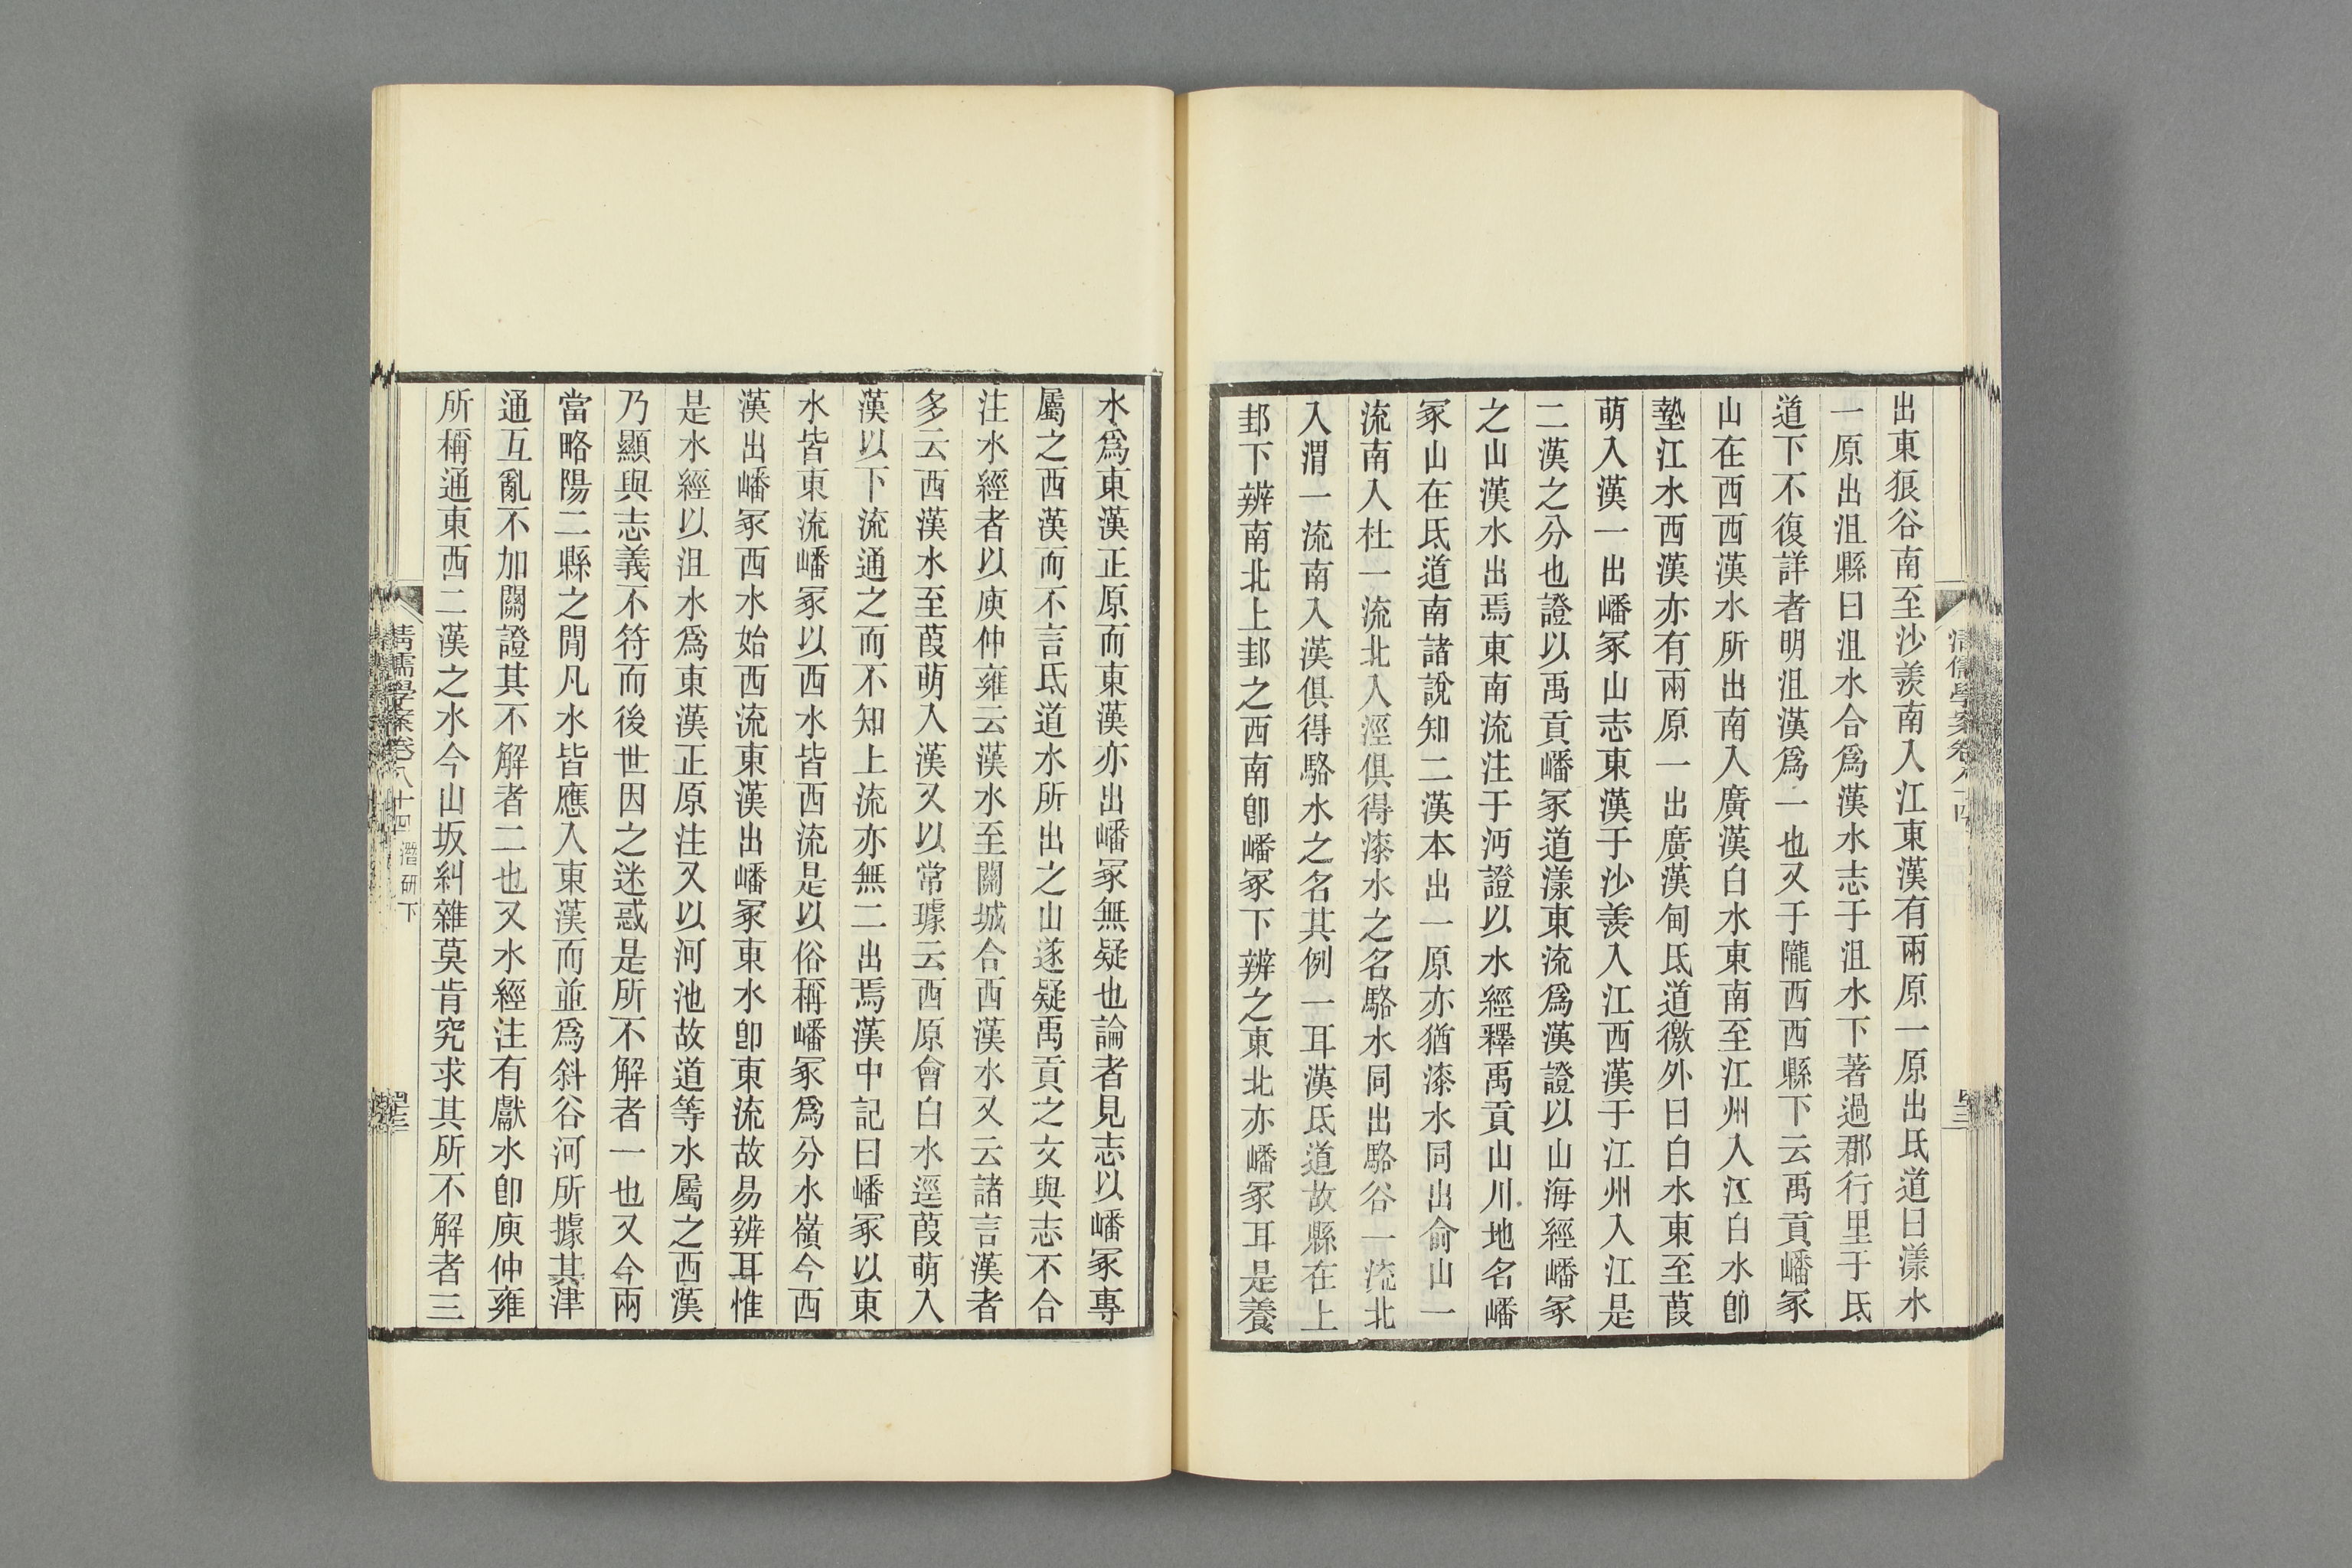 出東狼谷南至沙羨南入江東漢有兩原一原出氐道曰漾水
一原出沮縣曰沮水合爲漢水志于沮水下著過郡行里于氐
道下不復詳者明沮漢爲一也又于隴西西縣下云禹貢嶓冢
山在西西漢水所出南入廣漢白水東南至江州入江白水卽
墊江水西漢亦有兩原一出廣漢甸氐道徼外曰白水東至葭
萌入漢一出嶓冢山志東漢于沙羨入江西漢于江州入江是
二漢之分也證以禹貢嶓冢道漾東流爲漢證以山海經嶓冢
之山漢水出焉東南流注于沔證以水經釋禹貢山川地名嶓
冢山在氐道南諸說知二漢本出一原亦猶漆水同出俞山一
流南入杜一流北入涇俱得漆水之名駱水同出駱谷一流北
入渭一流南入漢俱得駱水之名其例一耳漢氐道故縣在上
邽下辨南北上邽之西南卽嶓冢下辨之東北亦嶓冢耳是養
水爲東漢正原而東漢亦出嶓冢無疑也論者見志以嶓冢專
屬之西漢而不言氐道水所出之山遂疑禹貢之文與志不合
注水經者以庾仲雍云漢水至關城合西漢水又云諸言漢者
多云西漢水至葭萌入漢又以常璩云西原會白水逕葭萌入
漢以下流通之而不知上流亦無二出焉漢中記曰嶓冢以東
水皆東流嶓冢以西水皆西流是以俗稱嶓冢爲分水嶺今西
漢出嶓冢西水始西流東漢出嶓冢東水卽東流故易辨耳惟
是水經以沮水爲東漢正原注又以河池故道等水屬之西漢
乃顯與志義不符而後世因之迷惑是所不解者一也又今兩
當略陽二縣之閒凡水皆應入東漢而並爲斜谷河所據其津
通互亂不加關證其不解者二也又水經注有獻水卽庾仲雍
所稱通東西二漢之水今山坂糾雜莫肯究求其所不解者三
清儒學案卷八十四 潛研下